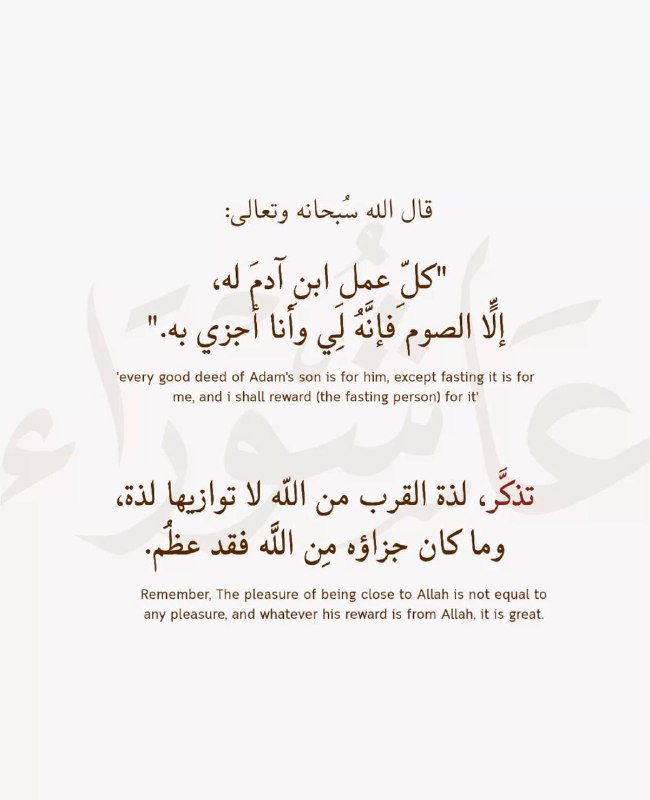 قال الله سُبحانه وتعالى:
"كلّ عملِ ابنِ آدمَ له،
إلَّا الصوم فإنَّهُ لَِي وأنا أجزي به."
'every good deed of Adam's son is for him, except fasting it is for
me, and i shall reward (the fasting person) for it'
عَاشُورَاء
تذكَّر، لذة القرب من اللّه لا توازيها لذة،
وما كان جزاؤه مِن اللَّه فقد عظُم.
Remember, The pleasure of being close to Allah is not equal to
any pleasure, and whatever his reward is from Allah, it is great.